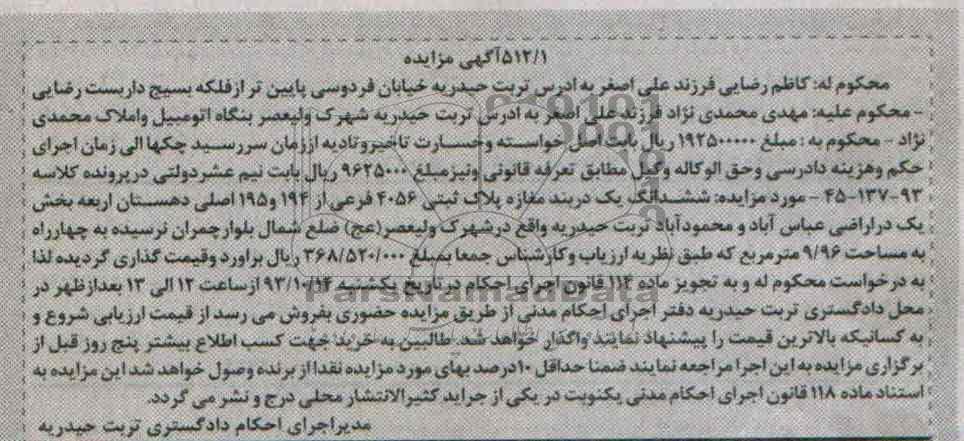 ۵۱۲/۱آگهی مزایده
محکوم له: کاظم رضایی فرزند علی اصغر به ادرس تربت حیدریه خیابان فردوسی پایین تر ازفلکه بسیج داربست رضایی
- محکوم علیه: مهدی محمدی نژاد فرزند علی اصغر به ادرس تربت حیدریه شهرک ولیعصر بنگاه اتومبیل واملاک محمدی
نژاد - محکوم به : مبلغ ۱۹۲۵۰۰۰۰۰ ریال بابت اصل خواسته وخسارت تاخیروتادیه اززمان سررسید چکها الی زمان اجرای
حکم وهزینه دادرسی وحق الوکاله وکیل مطابق تعرفه قانونی ونیزمبلغ ۹۶۲۵۰۰۰ ریال بابت نیم عشردولتی درپرونده کلاسه
۹۳-۱۳۷-۴۵- مورد مزایده: ششدانگ یک دربند مغازه پلاک ثبتی ۴۰۵۶ فرعی از ۱۹۴ و۱۹۵ اصلی دهستان اربعه بخش
یک دراراضی عباس آباد و محمودآباد تربت حیدریه واقع درشهرک ولیعصر(عج) ضلع شمال بلوارچمران نرسیده به چهارراه
به مساحت ۹/۹۶ مترمربع که طبق نظریه ارزیاب وکارشناس جمعا بمبلغ ۳۶۸/۵۲۰/۰۰۰ ریال براورد وقیمت گذاری گردیده لذا
به درخواست محکوم له و به تجویز ماده ۱۱۴ قانون اجرای احکام درتاریخ یکشنبه ۹۳/۱۰/۱۴ ازساعت ۱۲ الی ۱۳ بعدازظهر در
محل دادگستری تربت حیدریه دفتر اجرای احکام مدنی از طریق مزایده حضوری بفروش می رسد از قیمت ارزیابی شروع و
به کسانیکه بالاترین قیمت را پیشنهاد نمایند واگذار خواهد شد. طالبین به خرید جهت کسب اطلاع بیشتر پنج روز قبل از
برگزاری مزایده به این اجرا مراجعه نمایند ضمنا حداقل ۱۰درصد بهای مورد مزایده نقدا از برنده وصول خواهد شد این مزایده به
استناد ماده ۱۱۸ قانون اجرای احکام مدنی یکنوبت در یکی از جراید کثیرالانتشار محلی درج و نشر می گردد.
مدیراجرای احکام دادگستری تربت حیدریه
ParsNamadData